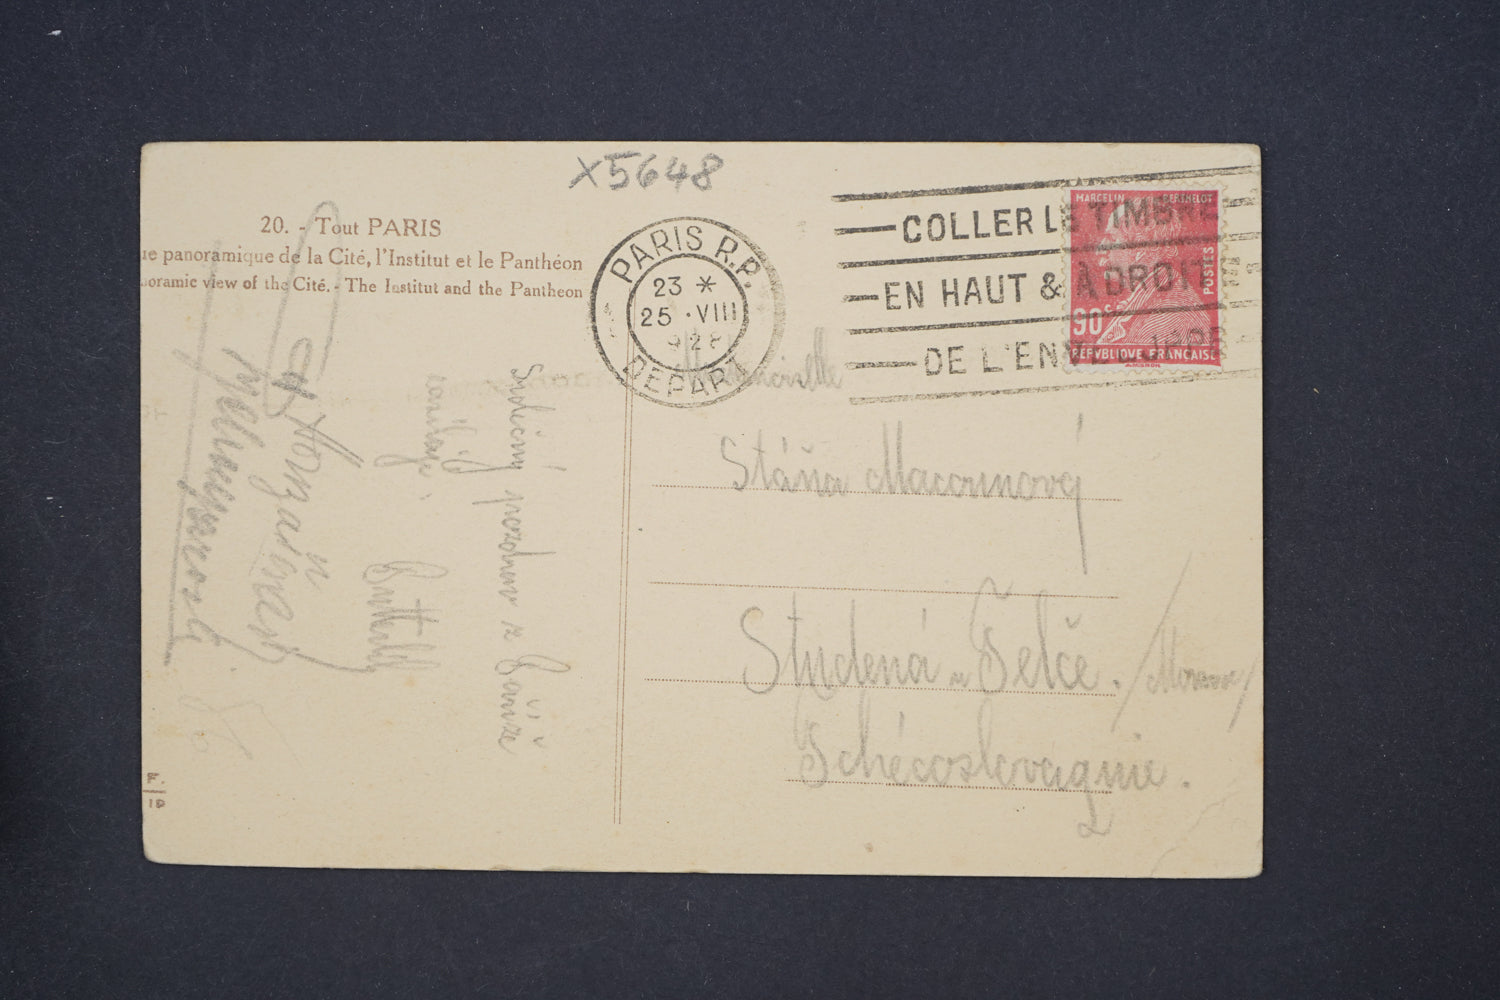 X5648
20. - Tout PARIS
ue panoramique de la Cité, l'Institut et le Panthéon
oramic view of the Cité. - The Institut and the Pantheon
PARIS R.P.
23 *
25 · VIII
928
DEPART
COLLER LE TIMBRE
EN HAUT & À DROITE
DE L'ENVELOPPE
MARCELIN BERTHELOT
POSTES
90c
REPVBLIQVE FRANÇAISE
Srdečný pozdrav z Paříže
zasílají
Mademoiselle
Stáňa Macounová
Studená u Telče. / Morava /
Tchécoslovaquie.
F.
19